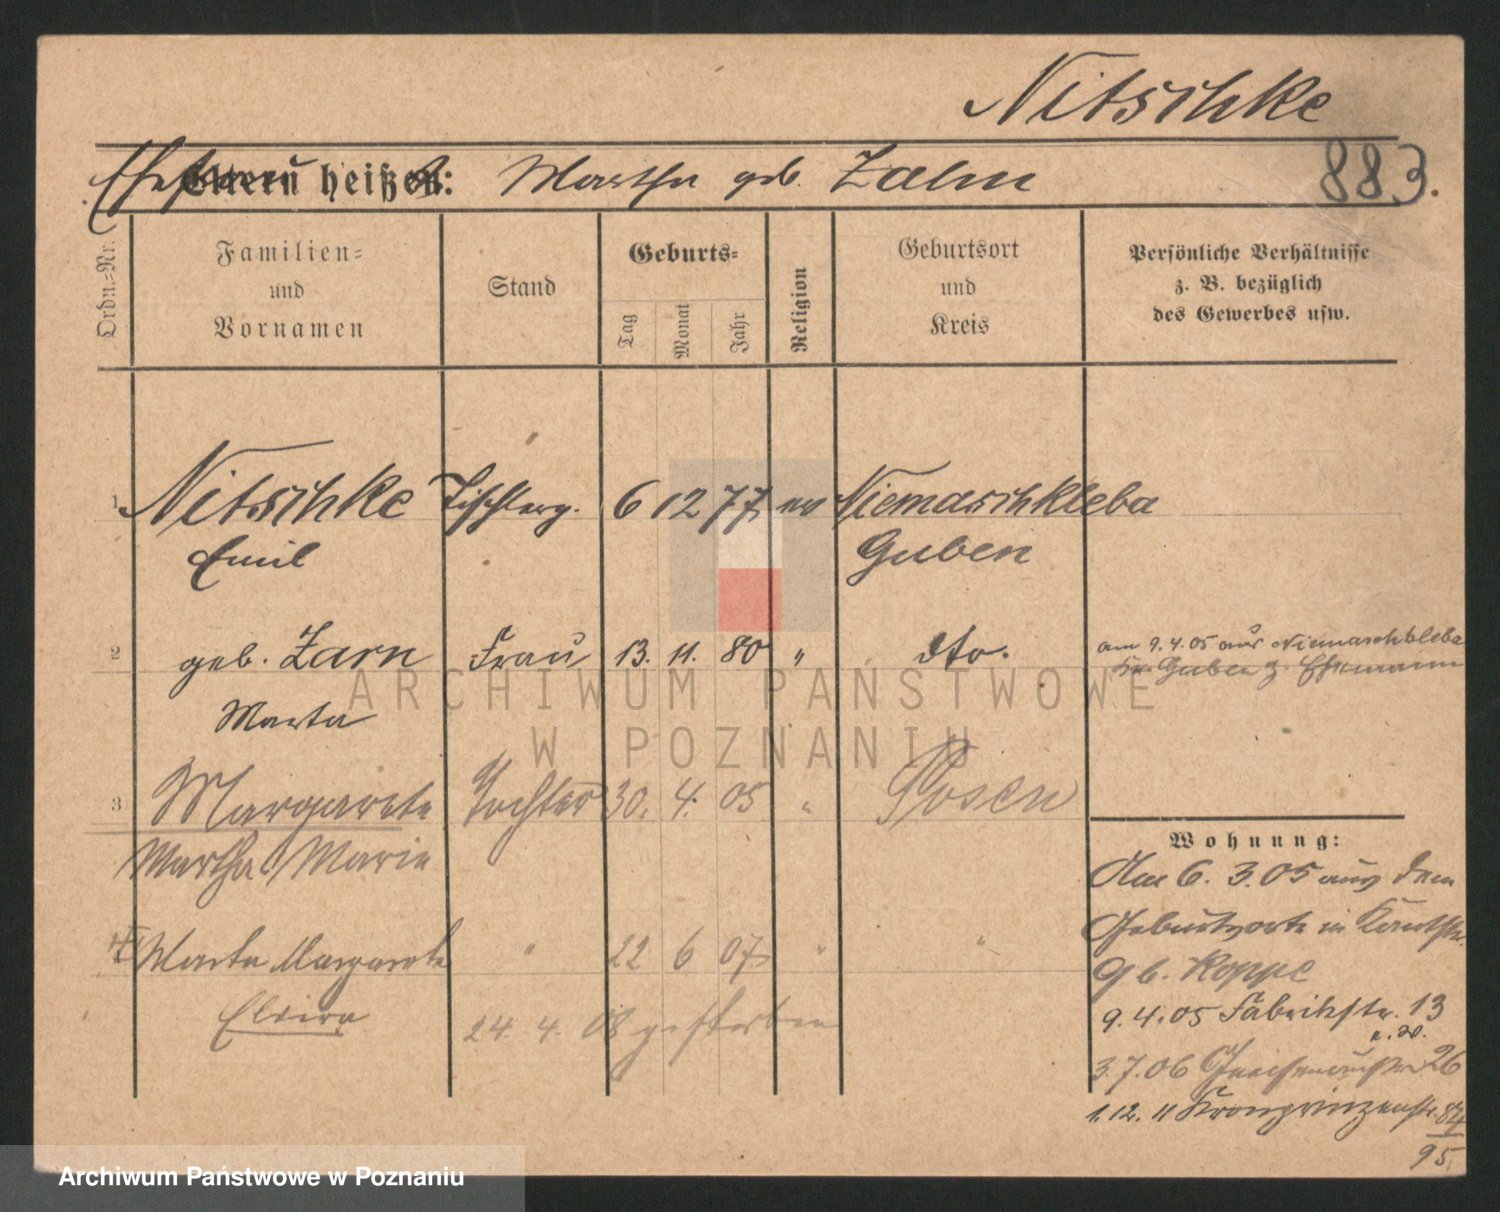 Nitschke
Ehefrau heißt: Martha geb. Zalm
883.
Ordn.-Nr.
Familien-
und
Vornamen
Stand
Geburts-
Tag
Monat
Jahr
Religion
Geburtsort
und
Kreis
Persönliche Verhältnisse
z. B. bezüglich
des Gewerbes usw.
1 Nitschke Tischlerg. 6 12 77 ev Niemaschkleba
Emil Guben
2 geb. Zarn Frau 13. 11. 80 " dto. am 9.4.05 aus Niemaschkleba
Kr. Guben z. Ehemann
Marta
3 Margarete Tochter 30. 4. 05 " Posen
Martha Marie
Wohnung:
Am 6. 3.05 aus dem
Geburtsorte in
4 Marta Margarete " 22 6 07 " "
b. Koppe
Elvira 24. 4. 08 gestorben
9.4.05 Fabrikstr. 13
3.7.06 Gneisenaustr. 26
1.12.11 Kronprinzenstr. 87
95
ARCHIWUM PAŃSTWOWE
W POZNANIU
Archiwum Państwowe w Poznaniu